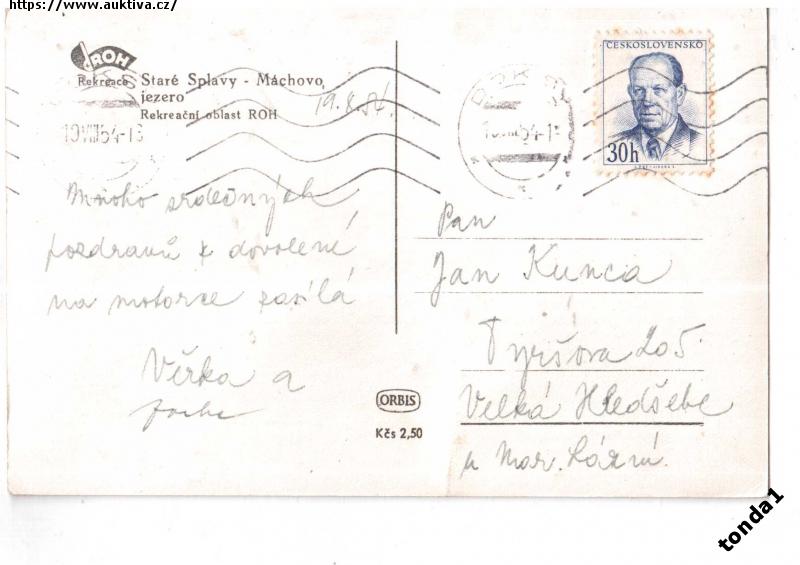 https://www.auktiva.cz/
ROH
Rekreace
Staré Splavy - Máchovo
jezero
Rekreační oblast ROH
19.8.54.
19.VIII.54-18
ČESKOSLOVENSKO
30h
Mnoho srdečných
pozdravů z dovolené
na motorce zasílá
Věrka a
Pan
Jan Kunca
Tyršova 205
Velká Hledsebe
u Mar. Lázní.
ORBIS
Kčs 2,50
tonda1